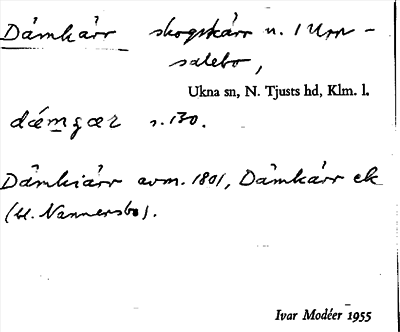 Dämkärr skogskärr n. 1 Upp-
salebo,
Ukna sn, N. Tjusts hd, Klm. l.
dæmgær s. 130.
Dämkiärr avm. 1801, Dämkärr ek
(u. Nannersbo).
Ivar Modéer 1955